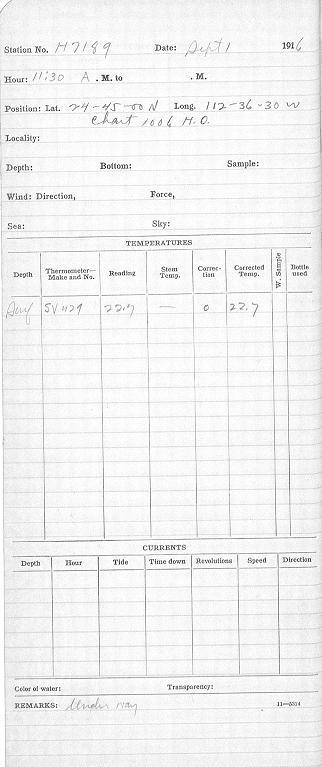 Station No. H7189 Date: Sept 1 1916
Hour: 11:30 A . M. to . M.
Position: Lat. 24-45-00 N Long. 112-36-30 W
Chart 1006 H.O.
Locality:
Depth: Bottom: Sample:
Wind: Direction, Force,
Sea: Sky:
TEMPERATURES
Depth Thermometer—Make and No. Reading Stem Temp. Correction Corrected Temp. W. Sample Bottle used
Surf SV 1129 22.7 — 0 22.7
CURRENTS
Depth Hour Tide Time down Revolutions Speed Direction
Color of water: Transparency:
REMARKS: Under way 11—5314